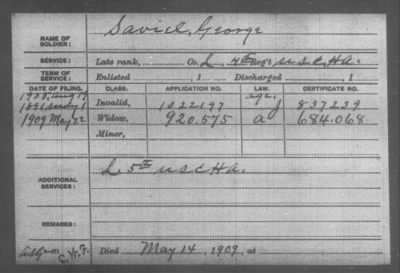 NAME OF SOLDIER: Saviel, George
SERVICE: Late rank, Co. L, 4th Reg't U.S.C.H.A.
TERM OF SERVICE: Enlisted , 1 Discharged , 1
DATE OF FILING. CLASS. APPLICATION NO. LAW. CERTIFICATE NO.
1891 July 1 Invalid, 1022197 J 837239
1909 May 22 Widow, 920.575 a 684.068
Minor,
ADDITIONAL SERVICES: L 5th U.S.C.H.A.
REMARKS:
Died May 14, 1909, at